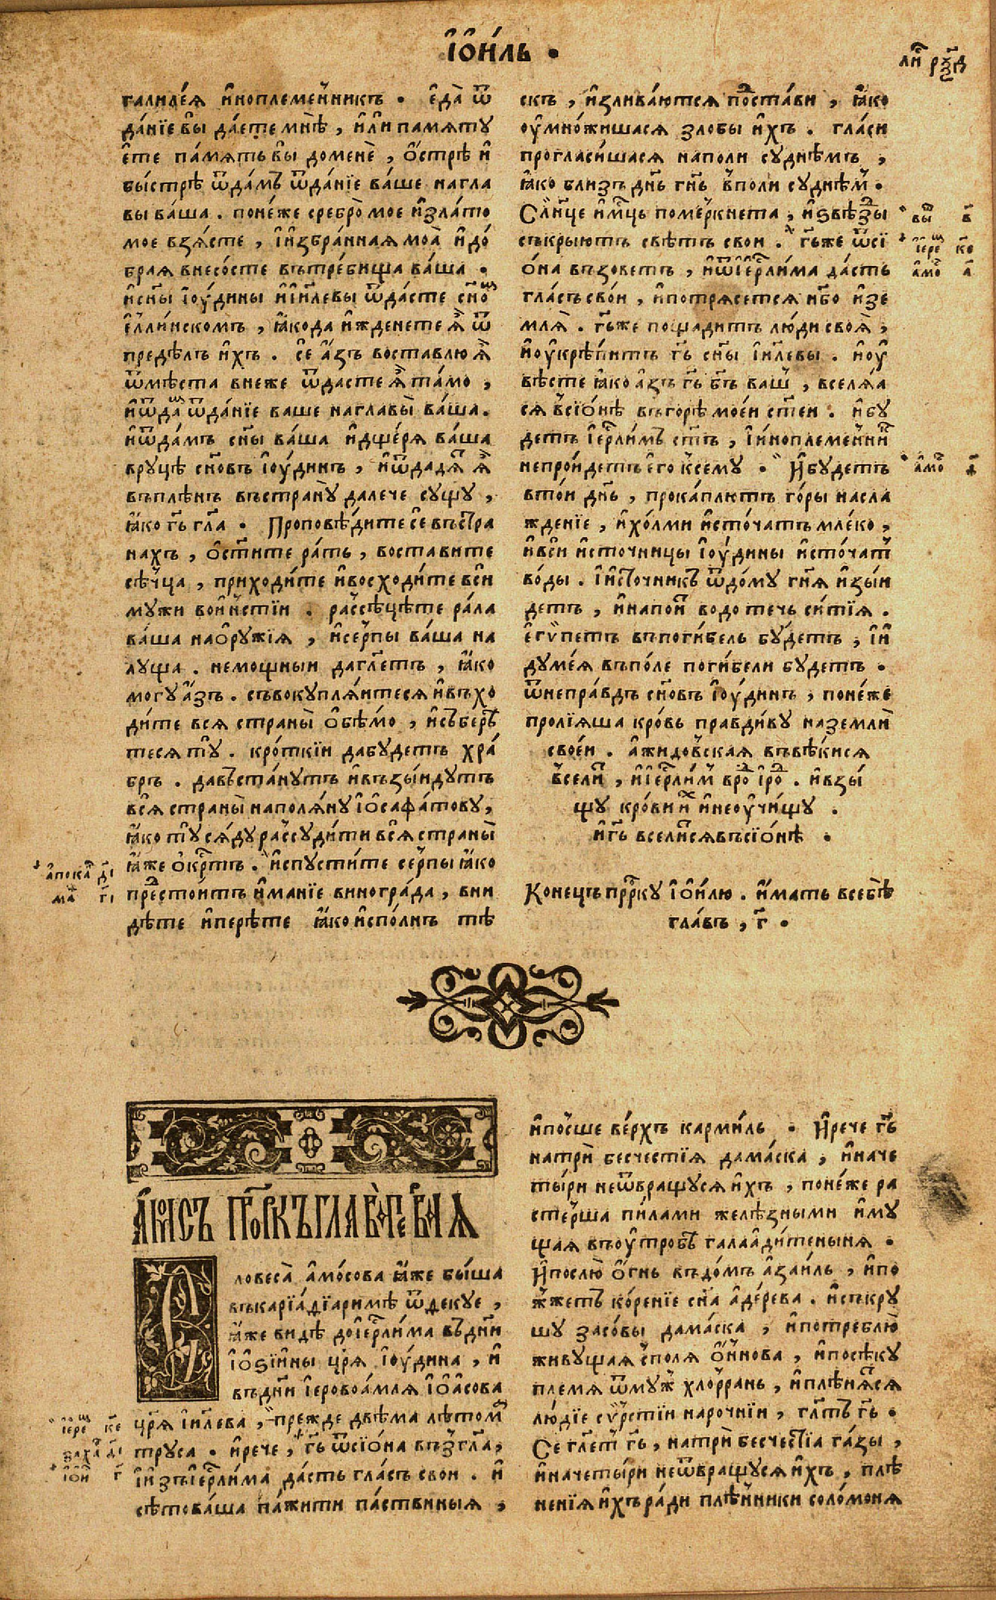 і҆ои́ль .
ли҃ рѯ҃д
галиле́я и҆ноплеме́нникъ . є҆да̀ ѿ
да́нїе вы̀ дае́те мнѣ̀ , и҆лѝ памяту
є҆те па́мять вы̀ до менѐ , ѻ҆́стрѣ и҆
бы́стрѣ ѿда́мъ ѿда́нїе ва́ше на гла
вы ва́ша . поне́же сребро̀ моѐ и҆ зла́то
моѐ взя́сте , и҆ и҆збра́нная моѧ̀ и҆ до́
брая внесо́сте в тре́бища ва́ша .
и҆ сн҃ы і҆ю́дины и҆ і҆и҃левы ѿда́сте сн҃о
є҆́ллинскомъ , ꙗ҆́кода и҆жденете ѧ҆̀ ѿ
предѣ́лъ и҆́хъ . сѐ а҆́зъ воставлю ѧ҆̀
ѿ мѣ́ста в неже ѿда́сте ѧ҆̀ та́мо ,
и҆ ѿда́ ѿда́нїе ваше на главы̀ ва́ша .
и҆ ѿда́мъ сн҃ы ва́ша и҆ дще́ря ва́ша
в руцѣ̀ сн҃овъ і҆ю́динъ , и҆ ѿдадя́ ѧ҆̀
въ плѣ́нъ въ страну̀ дале́че су́щу ,
ꙗ҆́ко гь҃ гл҃а . Проповѣ́дите сѐ въ стра
нахъ , ѻ҆ст҃и́те ра́ть , воставите
сѣчца̀ , приходи́те и҆ восходи́те всѝ
му́жи вои́нстїи . разсѣцѣ́те ра́ла
ва́ша на ѻ҆ру́жїя , и҆ се́рпы ва́ша на
лу́ща . немощныи да гл҃етъ , ꙗ҆́ко
могу̀ а҆́зъ . съвокупля́итеся и҆ въхо
ди́те вся̀ страны̀ о҆бъѣ́мо , и҆ събер
теся тꙋ̀ . кро́ткїи да бу́детъ хра́
бръ . да въста́нутъ и҆ възы́идутъ
вся̀ страны̀ на поля́ну і҆о҆сафа́тову ,
ꙗ҆́ко тꙋ̀ ся́ду разсуди́ти вся̀ страны̀
ꙗ҆́же о҆́кртъ . и҆спустите се́рпы ꙗ҆́ко
предстои́тъ и҆́манїе виногра́да , вни
дѣ́те и҆ пери́те ꙗ҆́ко и҆спо́лнъ тѣ́
скъ , и҆зліва́ются поста́ви , ꙗ҆́ко
ѹ҆мно́жишася зло́бы и҆́хъ . гла́си
прогласи́шася на поли су́днѣмъ ,
ꙗ҆́ко близъ дн҃ь гн҃ь в поли су́днѣм .
Сл҃нце и҆ мц҃ъ поме́ркнета , и҆ ѕвѣ́зды
съкрыю́тъ свѣ́тъ свои . гь҃ же ѿ сї
о́на възове́тъ , и҆ ѿ і҆ер҃ли́ма да́сть
гла́съ сво́и , и҆ потрясе́тся нб҃о и҆ зе
мля̀ . гь҃ же поща́дитъ лю́ди своя̀ ,
и҆ ѹ҆крѣ́питъ гь҃ сн҃ы і҆и҃левы . и҆ ѹ҆
вѣ́сте ꙗ҆́ко а҆́зъ гь҃ бг҃ъ ва́ш , вселя́я
ся в сїо́нѣ въ горѣ̀ мое́и ст҃ѣи . и҆ бу́
детъ і҆ер҃ли́мъ ст҃ъ , и҆ и҆ноплеме́нни
не про́идетъ є҆го̀ ксему . И҆ бу́детъ
в то́и дн҃ь , прока́плютъ го́ры насла
жде́нїе , и҆ хо́лми и҆сточа́тъ мле́ко ,
и҆ всѝ и҆сто́чницы і҆ю́дины и҆сточа́т
во́ды . и҆ и҆сто́чникъ ѿ до́му гн҃я и҆зы́и
детъ , и҆ напои́ водоте́чь си́тїя .
є҆гѵ́петъ въ поги́бель бу́детъ , и҆ и҆
думе́я въ по́ле поги́бели бу́детъ .
ѿ непра́вдъ сн҃овъ і҆ю́динъ , поне́же
пролїя́ша кро́вь правди́ву на земли́
свое́и . а҆ жидо́вская въ вѣ́ки ся
всели́ , и҆ і҆ер҃ли́м в ро́ и҆ ро́ . и҆ взы́
щу кро́ви и҆́х и҆ не ѹ҆чи́щу .
и҆ гь҃ вселится въ сїо́нѣ .
Коне́цъ прⷪ҇рку і҆о҆и́лю . и҆́мать в себѣ̀
гла́въ , г҃ .
а҆мо́съ прⷪ҇ркъ глава̀ пе́рвая
ловеса̀ а҆мо́сова ꙗ҆́же бы́ша
въ карїа́дїари́мѣ ѿ декуе ,
ꙗ҆́же ви́дѣ до і҆ер҃ли́ма въ дни̑
і҆о҆ѕїи́ны цр҃я і҆ю́дина , и҆
въ дни̑ і҆еровоа́мля і҆о҆а́сова
цр҃я і҆и҃лева , пре́жде двѣма̀ лѣ́том
тру́са . и҆ рече , гь҃ ѿ сїо́на възгла̀ ,
и҆ и҆зъ і҆ер҃ли́ма да́сть гла́съ свои . и҆
сѣ́това́ша па́жити па́ствиныя ,
и҆ по́сше ве́рхъ карми́ль . И҆ рече гь҃
на трѝ бесче́стїя дама́ска , и҆ на че
ты́ри не ѿвращу́ся и҆́хъ , поне́же ра
сте́рша пи́лами желѣ́зными и҆му
щая въ ѹ҆тро́бѣ галаади́теныня .
И҆ послю̀ ѻ҆́гнь въ до́мъ а҆заи́ль , и҆ по
жже́тъ ко́ренїе сн҃а а҆де́рева . и҆ съкру
шу̀ засо́вы дама́ска , и҆ потреблю̀
живу́щая с поля ѻ҆́нова , и҆ посѣку̀
пле́мя ѿ му́ж хлорра́нь , и҆ плѣня́ся
лю́дїе сѵ́рстїи наро́чнїи , гл҃етъ гь҃ .
Се глет҃ гь҃ , на трѝ бесче́стїа га́зы ,
и҆ на четы́ри не ѿвращу́ся и҆́хъ , плѣ
не́нїя и҆́хъ ра́ди плѣ́нники соло́моня